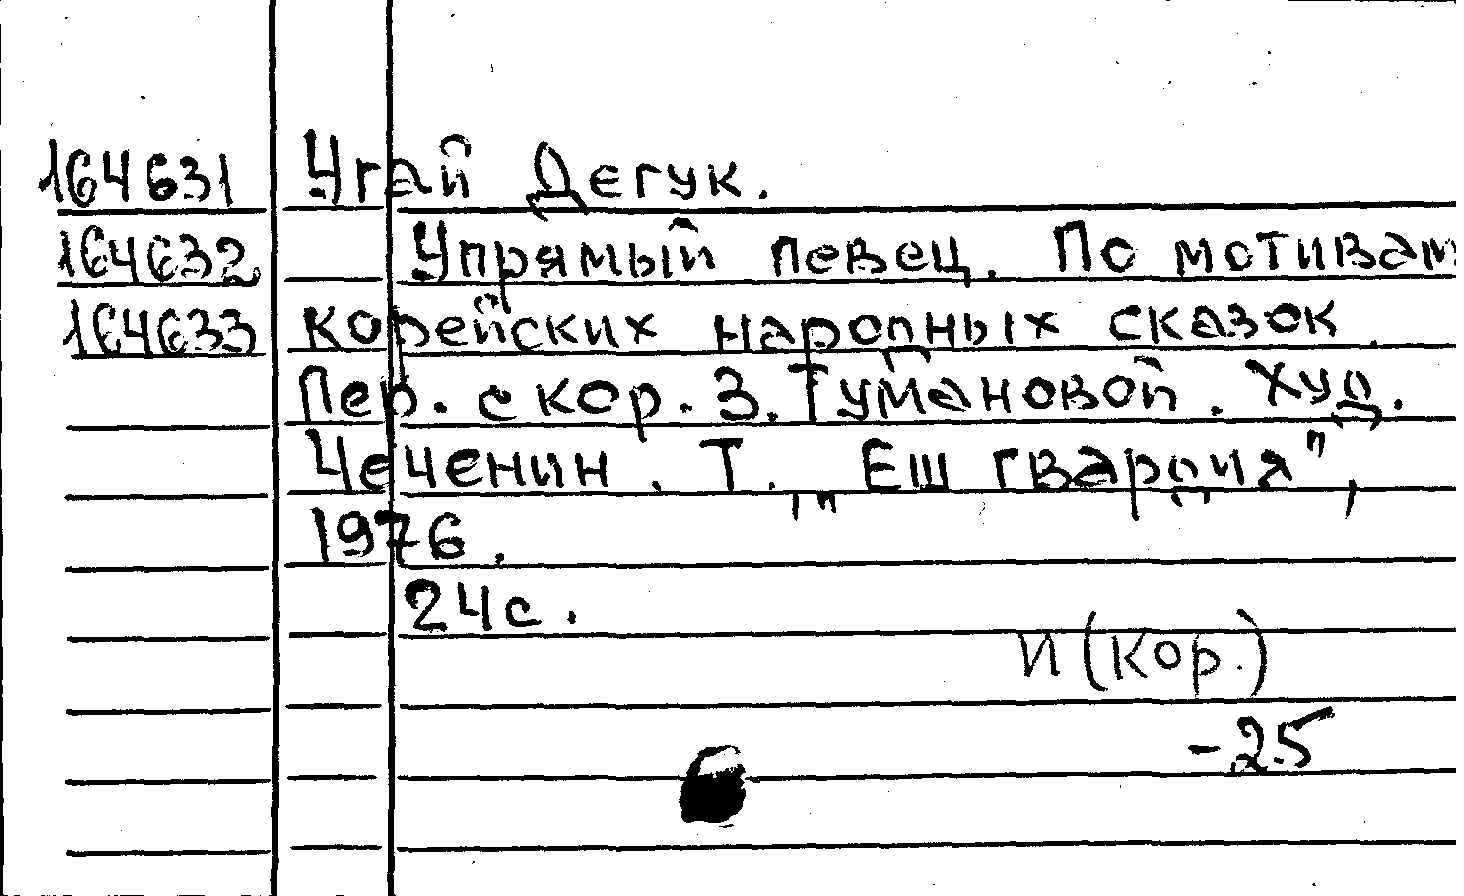 164631 Угай Дегук.
164632 Упрямый певец. По мотивам
164633 корейских народных сказок.
Пер. с кор. З. Тумановой. Худ.
Чеченин. Т. „Еш гвардия",
1976.
24с.
И (кор.)
-25